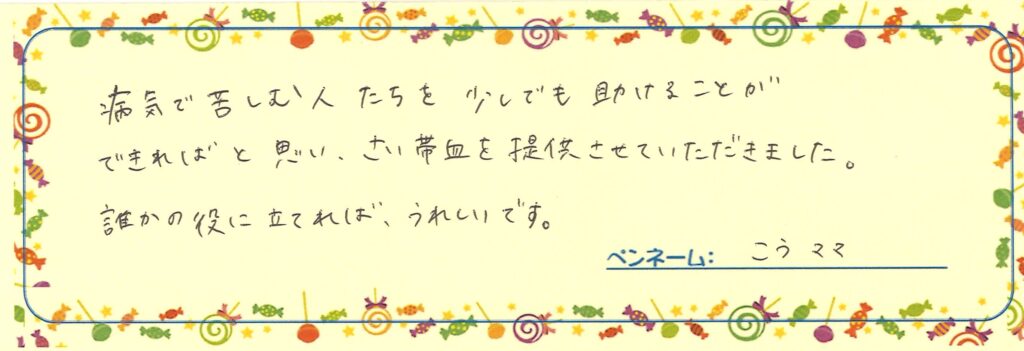 病気で苦しむ人たちを少しでも助けることが
できればと思い、さい帯血を提供させていただきました。
誰かの役に立てれば、うれしいです。
ペンネーム： こうママ